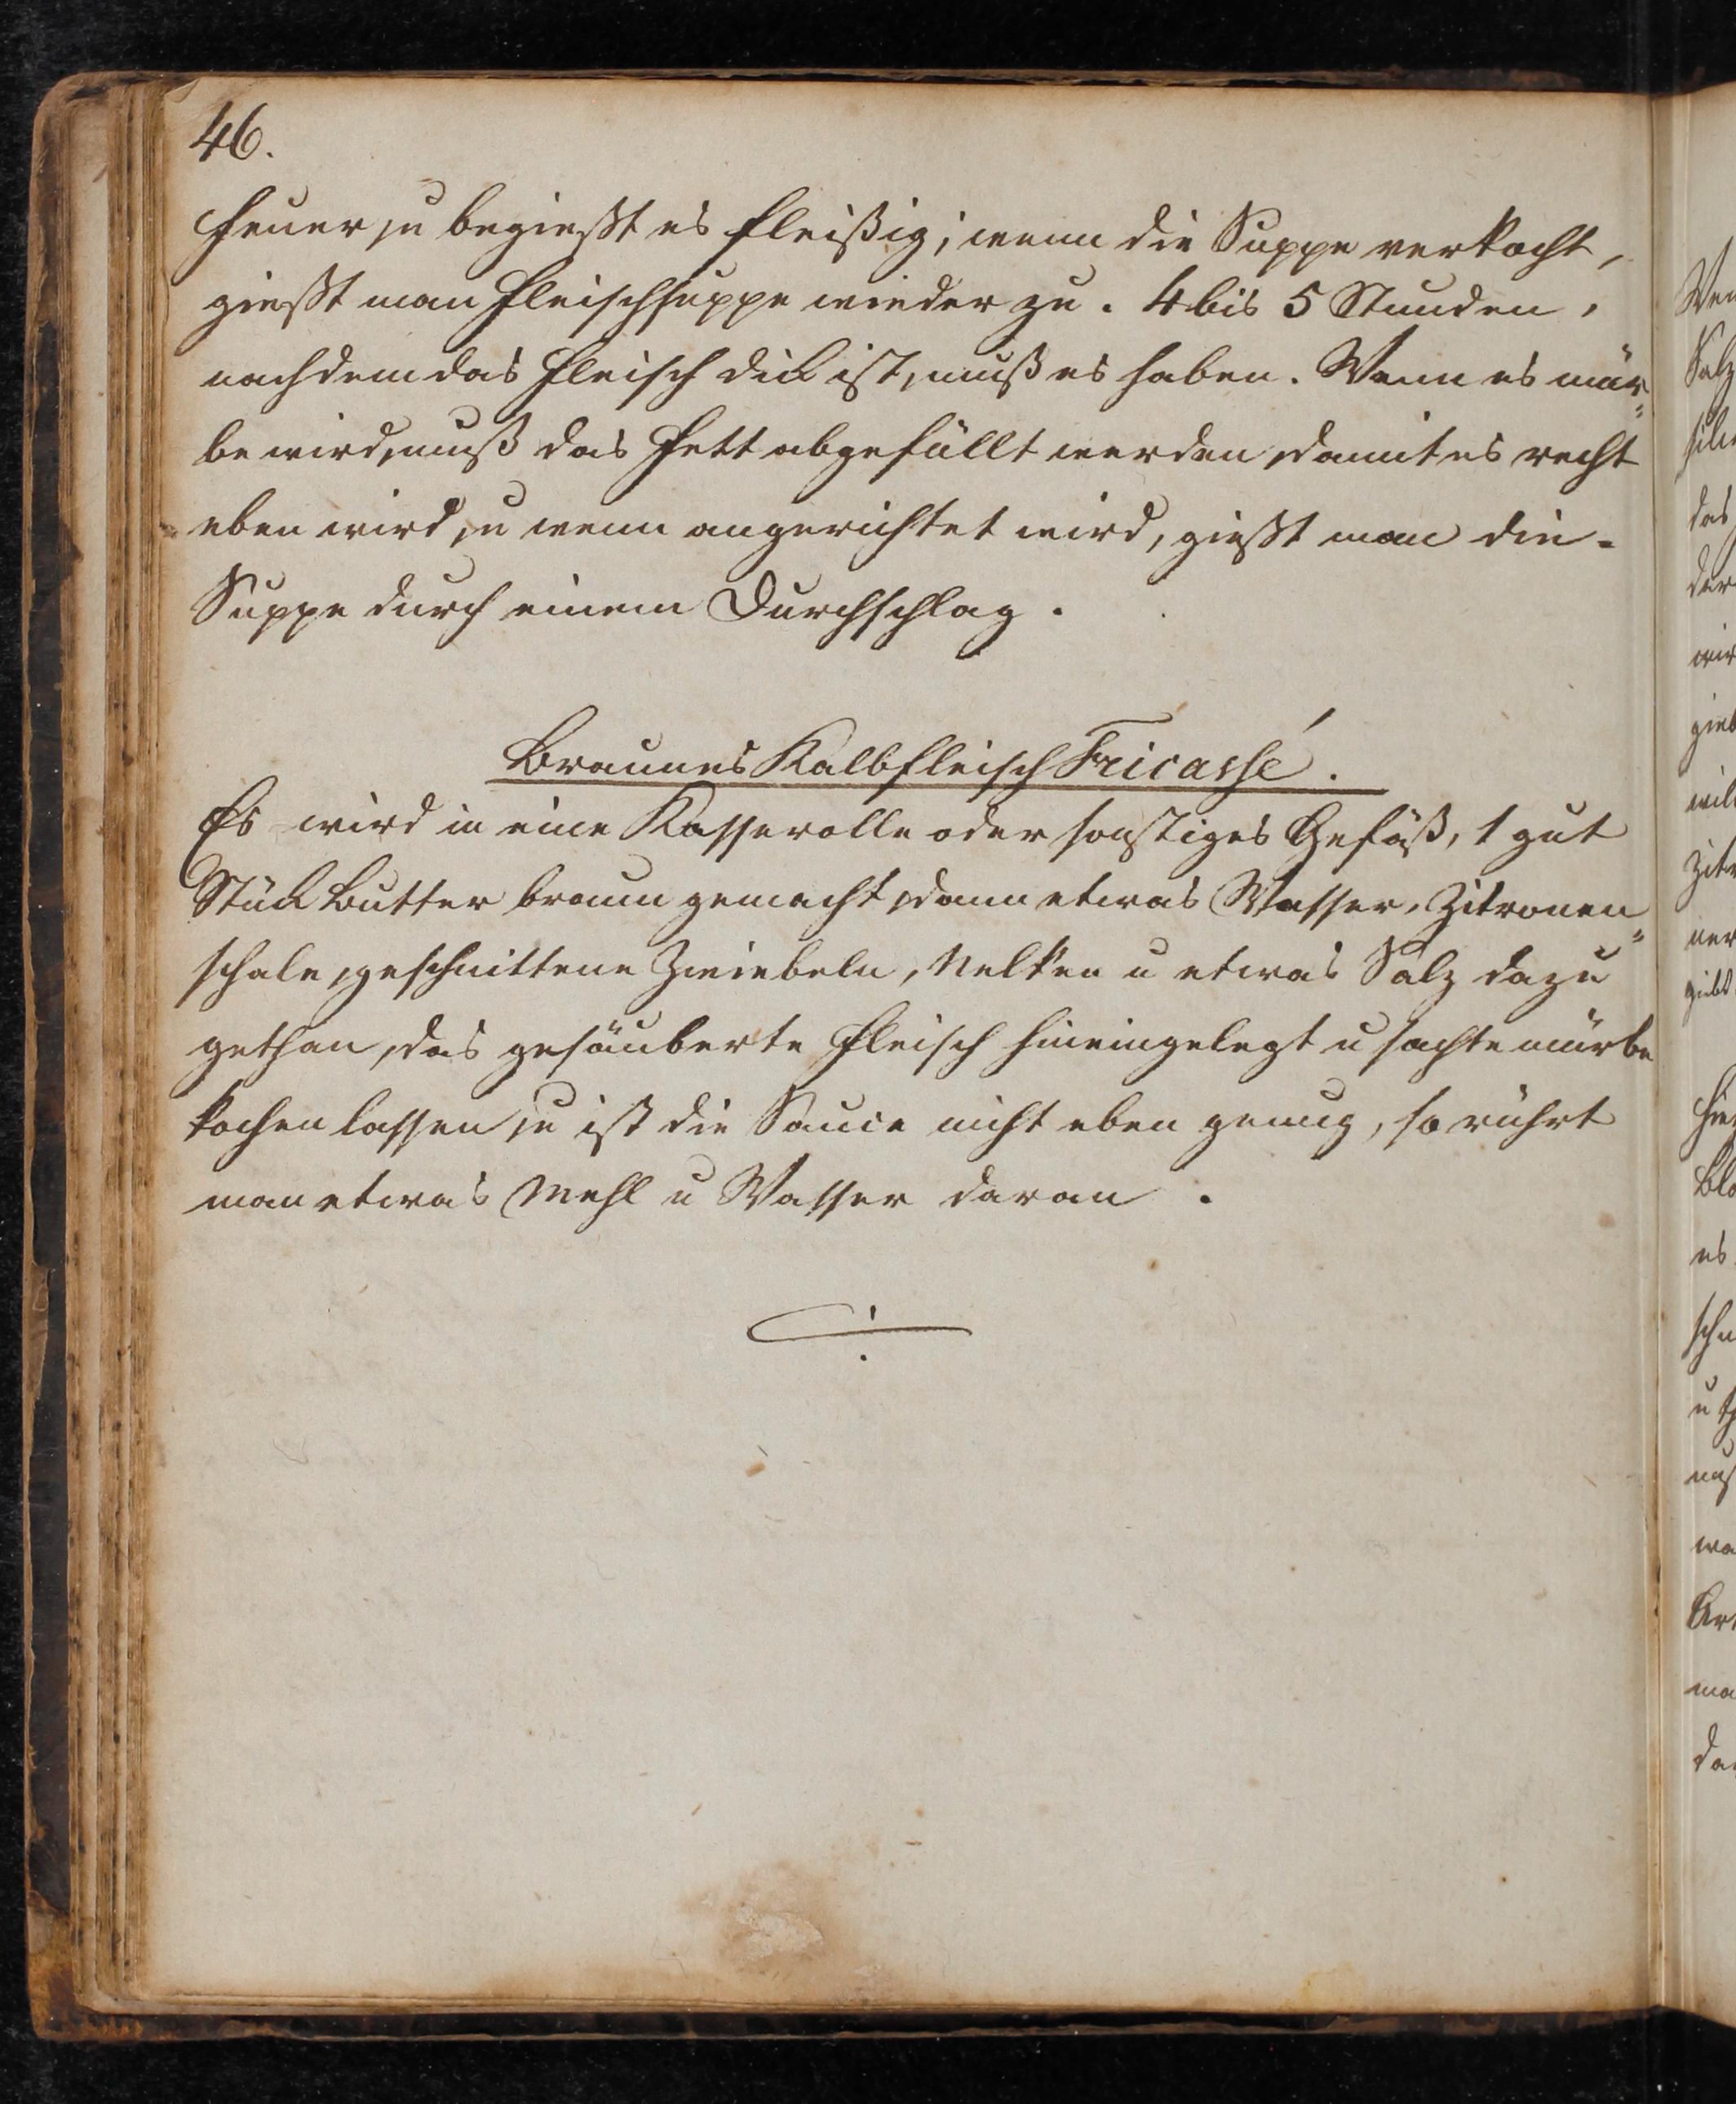 46.
Feuer, u begießt es fleißig; wenn die Suppe verkocht,
gießt man Fleischsuppe wieder zu. 4 bis 5 Stunden,
nachdem das Fleisch dick ist, muß es haben. Wenn es mür-
be wird, muß das Fett abgefüllt werden, damit es recht
eben wird, u wenn angerichtet wird, gießt man die
Suppe durch einem Durchschlag.
Braunes Kalbfleisch Fricassé.
Es wird in eine Kasserolle oder sonstiges Gefäß, 1 gut
Stück Butter braun gemacht, dann etwas Wasser, Zitronen-
schale, geschnittene Zwiebeln, Nelken u etwas Salz dazu
gethan, das gesäuberte Fleisch hineingelegt u sachte mürbe
kochen lassen, u ist die Sauce nicht eben genug, so rührt
man etwas Mehl u Wasser daran.